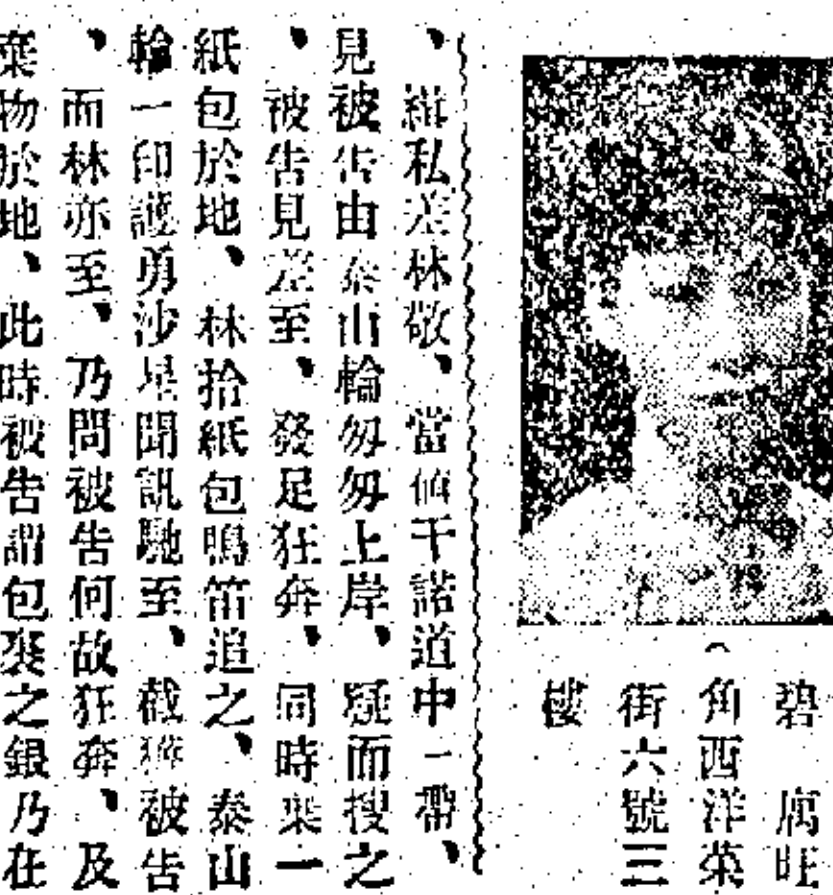 碧　寓旺
（角西洋菜
街六號三
樓
、緝私差林敬、當値干諾道中一帶、
見被告由泰山輪匆匆上岸、疑而搜之
、被告見差至、發足狂奔、同時棄一
紙包於地、林拾紙包鳴笛追之、泰山
輪一印護勇沙星聞訊馳至、截獲被告
、而林亦至、乃問被告何故狂奔、及
棄物於地、此時被告謂包裹之銀乃在